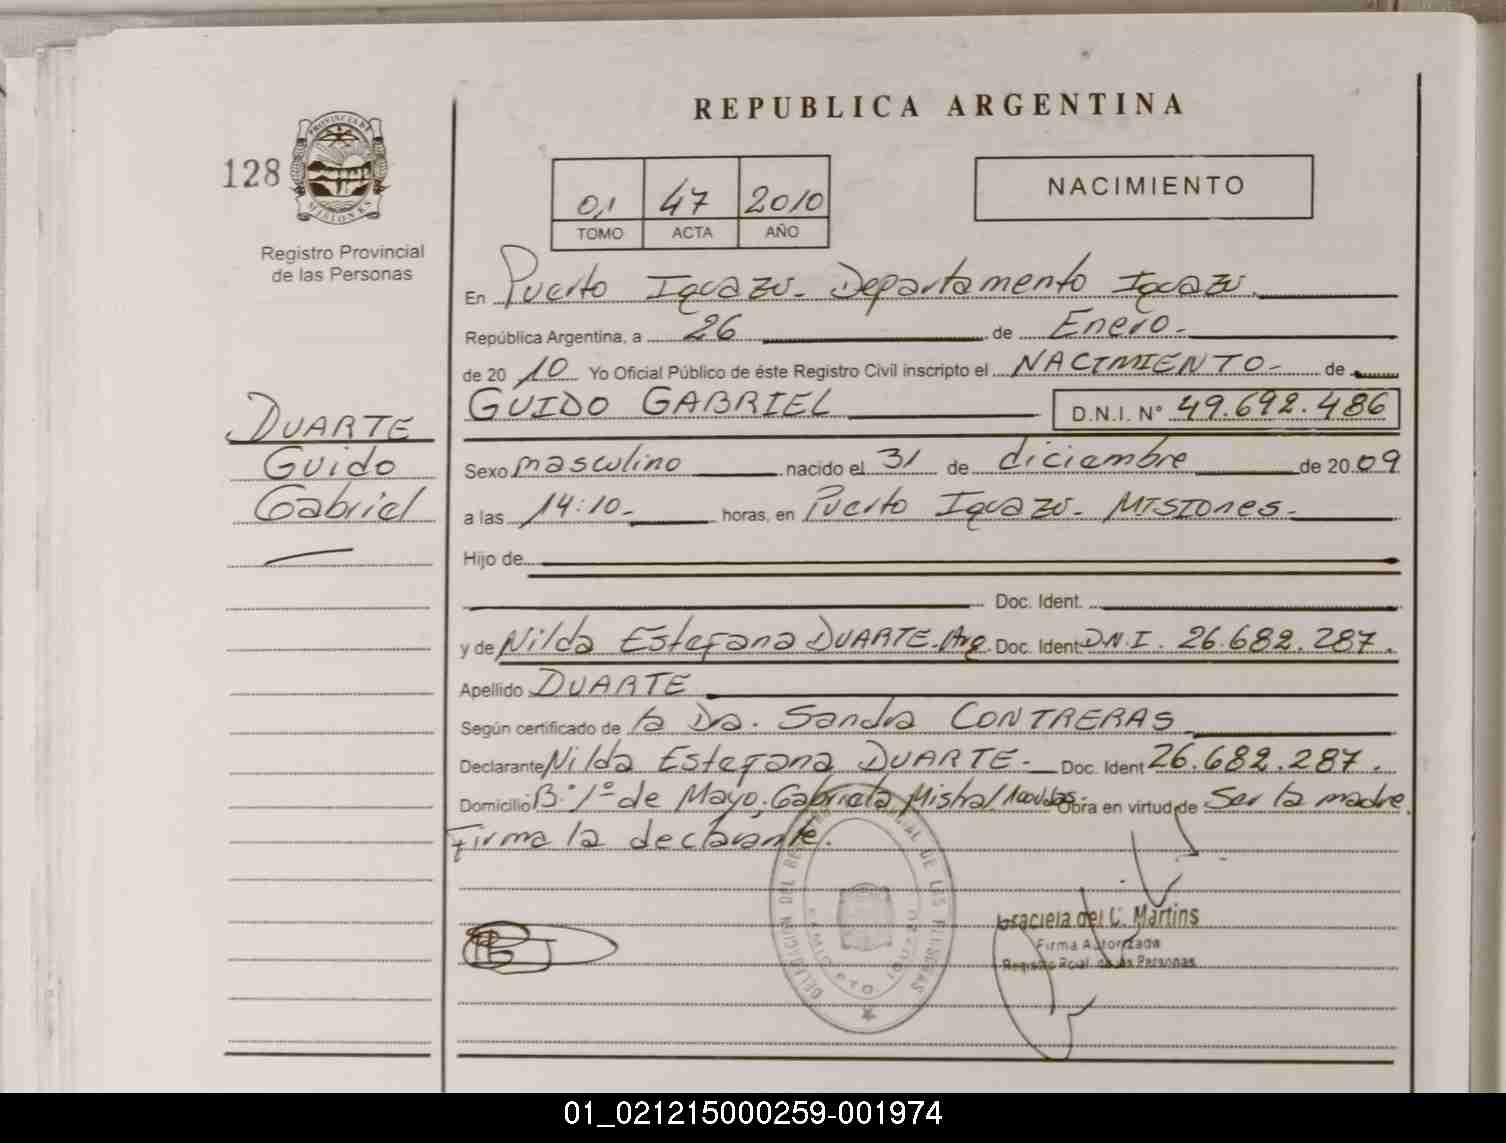 REPUBLICA ARGENTINA
128
PROVINCIA DE
MISIONES
Registro Provincial
de las Personas
01 47 2010
TOMO ACTA AÑO
NACIMIENTO
En Puerto Iguazu. Departamento Iguazu.
República Argentina, a 26 de Enero.
de 20 10 Yo Oficial Público de éste Registro Civil inscripto el NACIMIENTO de
GUIDO GABRIEL D.N.I. N° 49.692.486
DUARTE
Guido
Gabriel
Sexo masculino nacido el 31 de diciembre de 20 09
a las 14:10 horas, en Puerto Iguazu. MISIones.
Hijo de
Doc. Ident.
y de Nilda Estefana DUARTE. Arg. Doc. Ident D.N.I. 26.682.287.
Apellido DUARTE
Según certificado de la Dra. Sandra CONTRERAS
Declarante Nilda Estefana DUARTE Doc. Ident 26.682.287.
Domicilio B.° 1° de Mayo, Gabriela Mistral Obra en virtud de Ser la madre.
Firma la declarante.
Graciela del C. Martins
Firma Autorizada
Registro Pcial. de las Personas
01_021215000259-001974